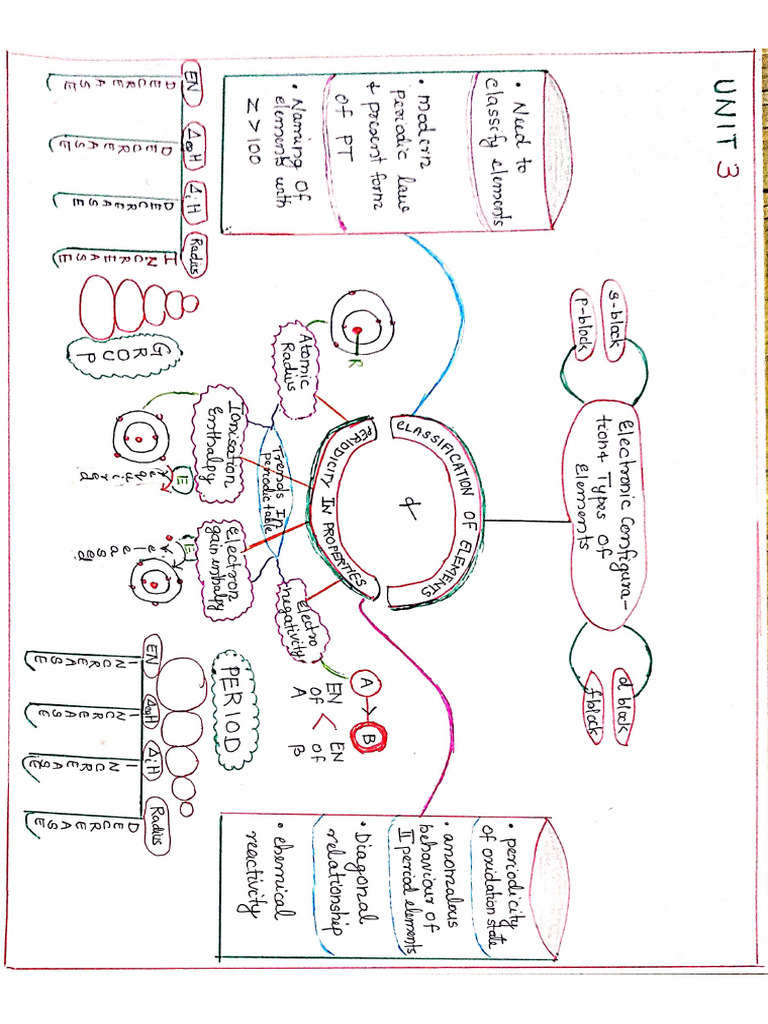 UNIT 3
• Need to
classify elements
• modern
Periodic law
& present form
of PT
• Naming of
elements with
Z > 100
s-block
p-block
Electronic Configura-
tion & Types Of
Elements
d block
f block
CLASSIFICATION OF ELEMENTS
&
PERIODICITY IN PROPERTIES
• periodicity
of oxidation state
• anomalous
behaviour of
II period elements
• Diagonal
relationship
• chemical
reactivity
Trends In
Periodic table
Atomic
Radius
R
Ionisation
Enthalpy
E
required
Electron
gain enthalpy
E
released
Electro
negativity
A
B
EN < EN
OF OF
A B
GROUP
Radius
INCREASE
ΔiH
DECREASE
ΔegH
DECREASE
EN
DECREASE
PERIOD
EN
INCREASE
ΔegH
INCREASE
ΔiH
INCREASE
Radius
DECREASE